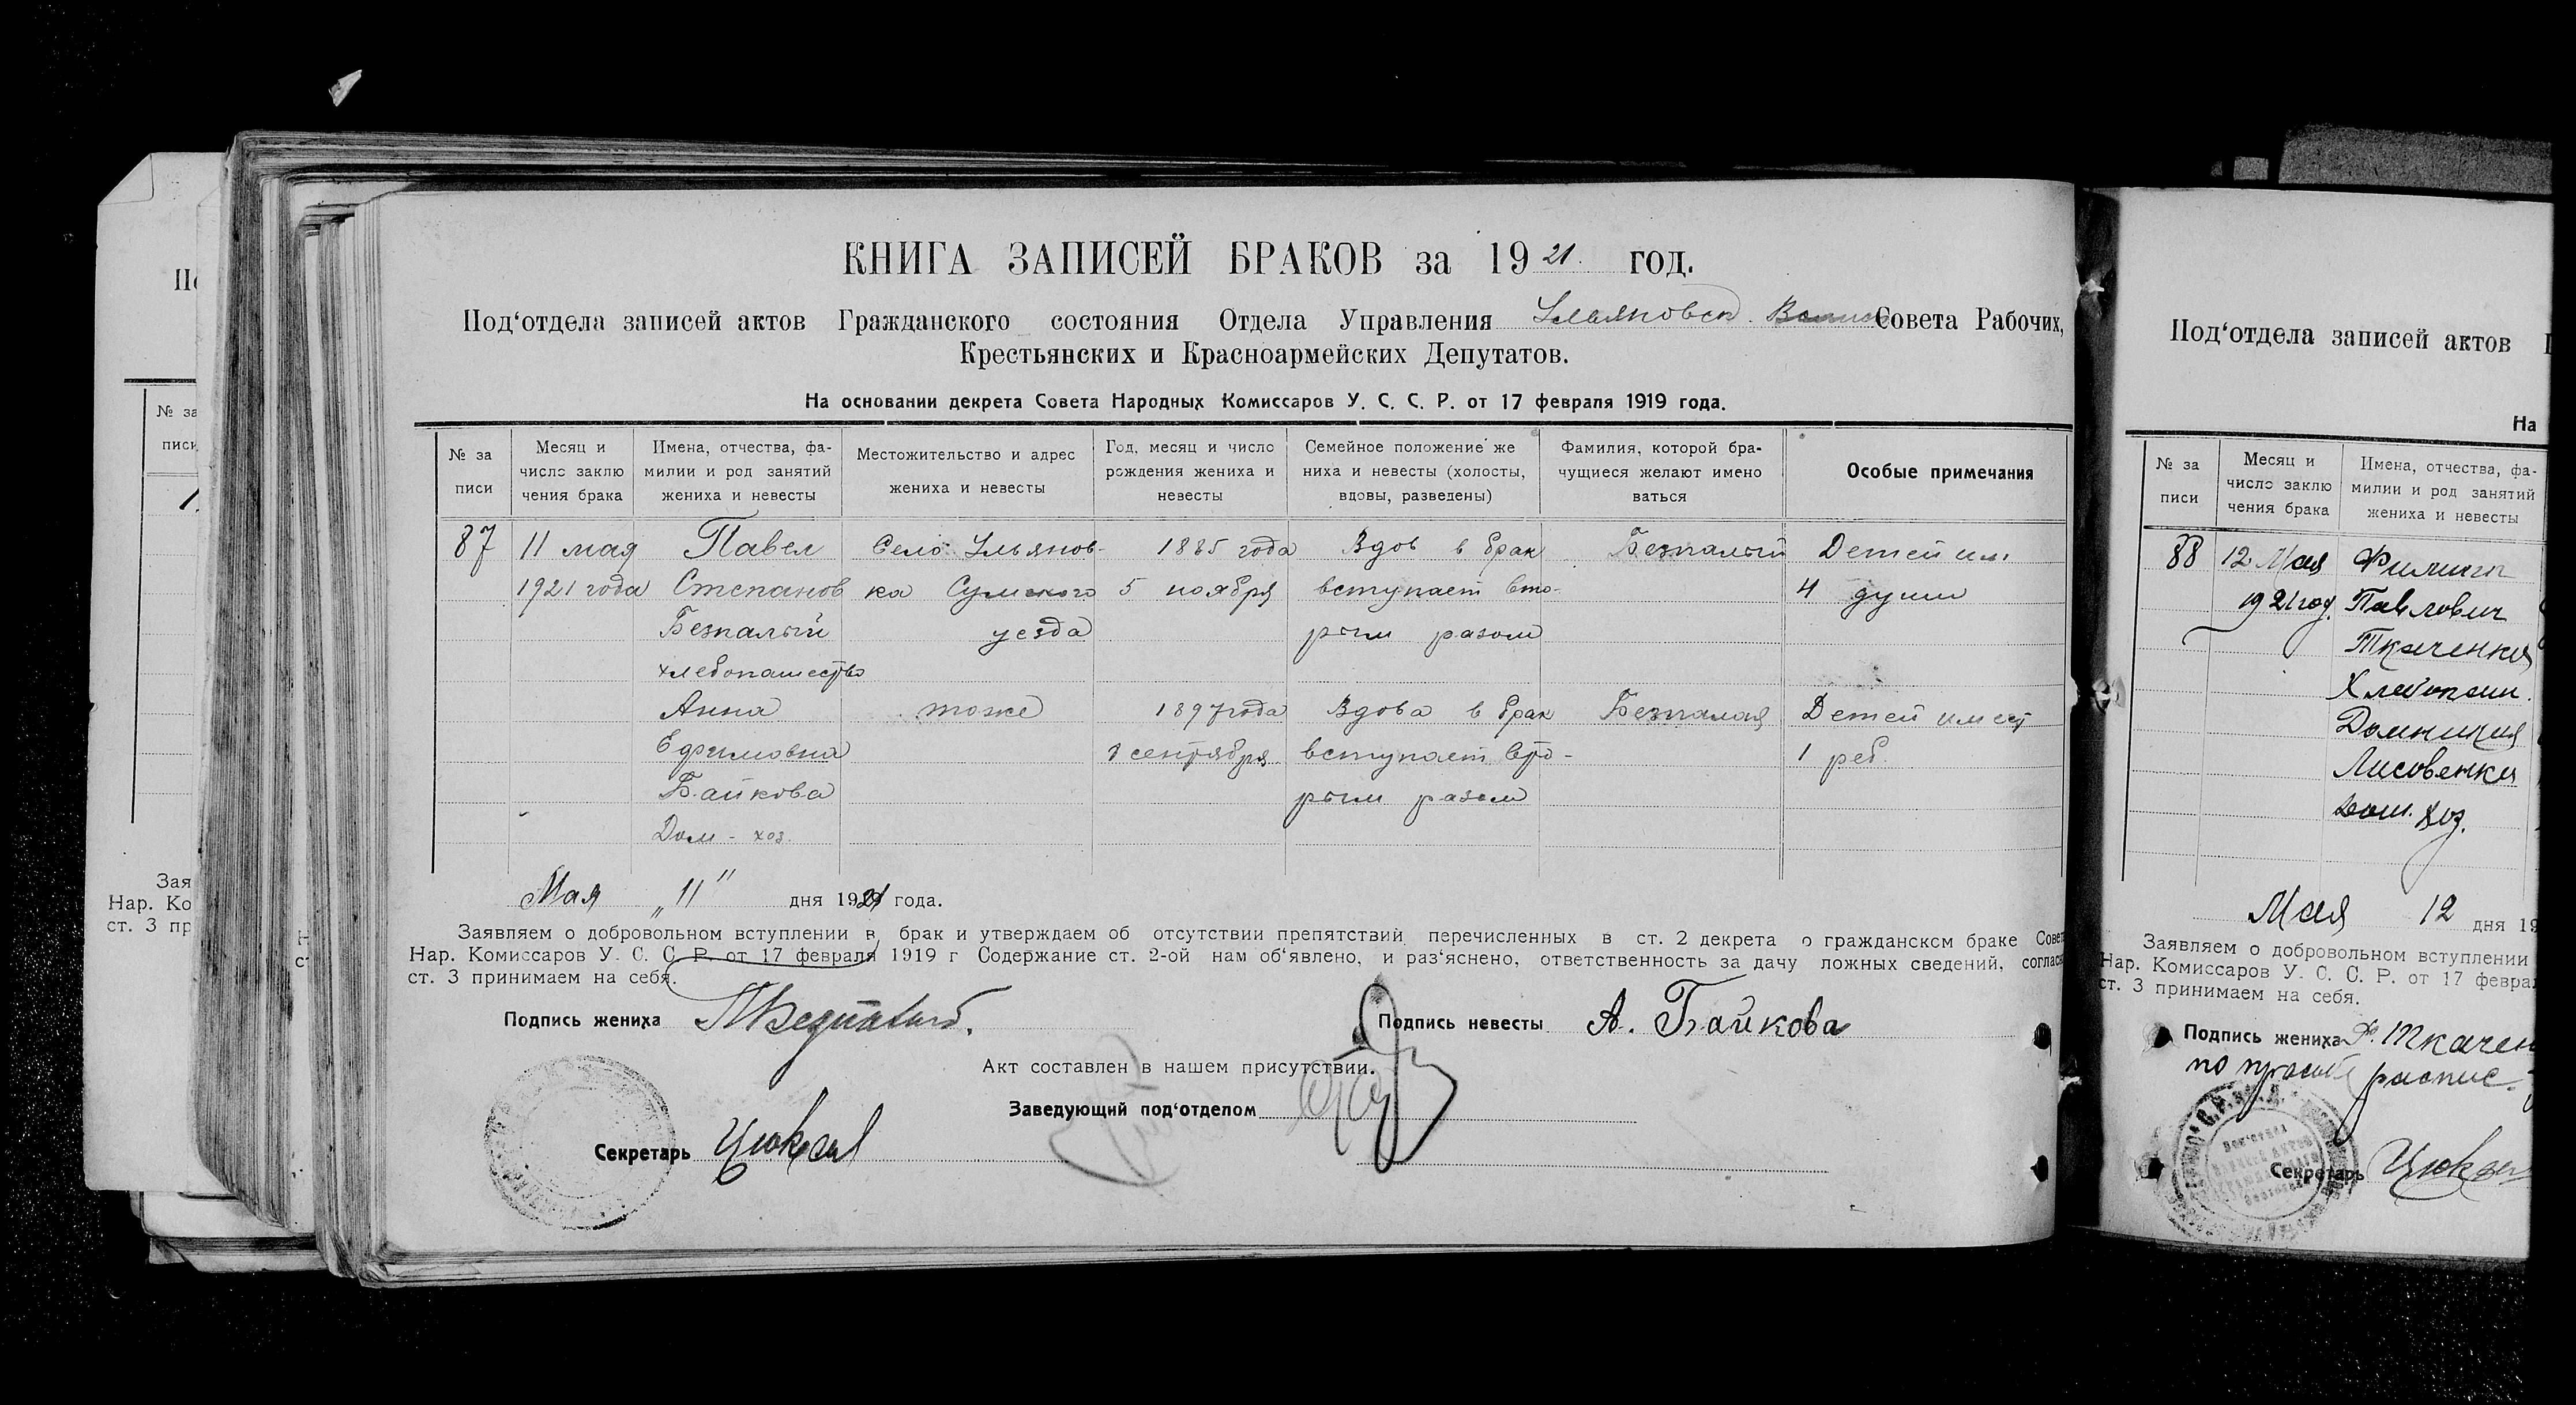 КНИГА ЗАПИСЕЙ БРАКОВ за 1921 год.
Под‘отдела записей актов Гражданского состояния Отдела Управления Ульяновск. Совета Рабочих,
Крестьянских и Красноармейских Депутатов.
На основании декрета Совета Народных Комиссаров У. С. С. Р. от 17 февраля 1919 года.
№ за
писи
Месяц и
число заклю
чения брака
Имена, отчества, фа-
милии и род занятий
жениха и невесты
Местожительство и адрес
жениха и невесты
Год, месяц и число
рождения жениха и
невесты
Семейное положение же
ниха и невесты (холосты,
вдовы, разведены)
Фамилия, которой бра-
чущиеся желают имено
ваться
Особые примечания
87
11 мая
1921 года
Павел
Степанов
Безпалый
хлебопашество
Село Ульянов-
ка Сумского
уезда
1885 года
5 ноября
Вдов в брак
вступает вто-
рым разом
Безпалый
Детей им.
4 души
Анна
Ефимовна
Байкова
Дом - хоз.
тоже
1897 года
сентября
Вдова в брак
вступает вто-
рым разом
Безпалая
Детей имеет
1 реб.
Мая „11” дня 1921 года.
Заявляем о добровольном вступлении в брак и утверждаем об отсутствии препятствий перечисленных в ст. 2 декрета о гражданском браке Совет
Нар. Комиссаров У. С. С. Р. от 17 февраля 1919 г Содержание ст. 2-ой нам об‘явлено, и раз‘яснено, ответственность за дачу ложных сведений, соглас
ст. 3 принимаем на себя.
Подпись жениха П Безпалый.
Подпись невесты А. Байкова
Акт составлен в нашем присутствии.
Заведующий под‘отделом
Секретарь
№ за
писи
Зая
Нар. Ко
ст. 3 пр
Под‘отдела записей актов
На
№ за
писи
Месяц и
число заклю
чения брака
Имена, отчества, фа-
милии и род занятий
жениха и невесты
88
12 Мая
1921 год.
Филипп
Павлович
Ткаченко
Хлебопаш.
Домникия
Лисовенко
Дом. хоз.
Мая 12 дня 19
Заявляем о добровольном вступлении
Нар. Комиссаров У. С. С. Р. от 17 феврал
ст. 3 принимаем на себя.
Подпись жениха Ф. Ткачен
по просьбе распис.
Секретарь